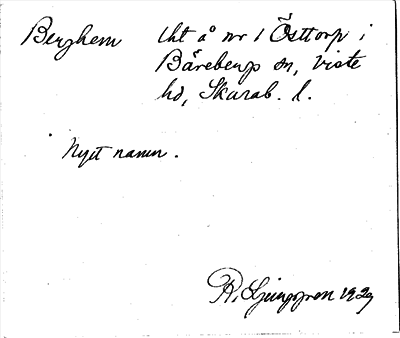 Berghem lht å nr 1 Östtorp i
Bårebergs sn, Viste
hd, Skarab. l.
Nytt namn.
R. Ljunggren 1929